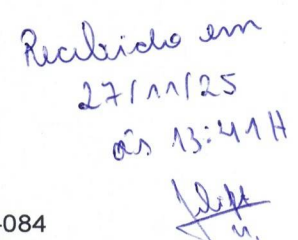 Recebido em
27/11/25
às 13:41H
-084